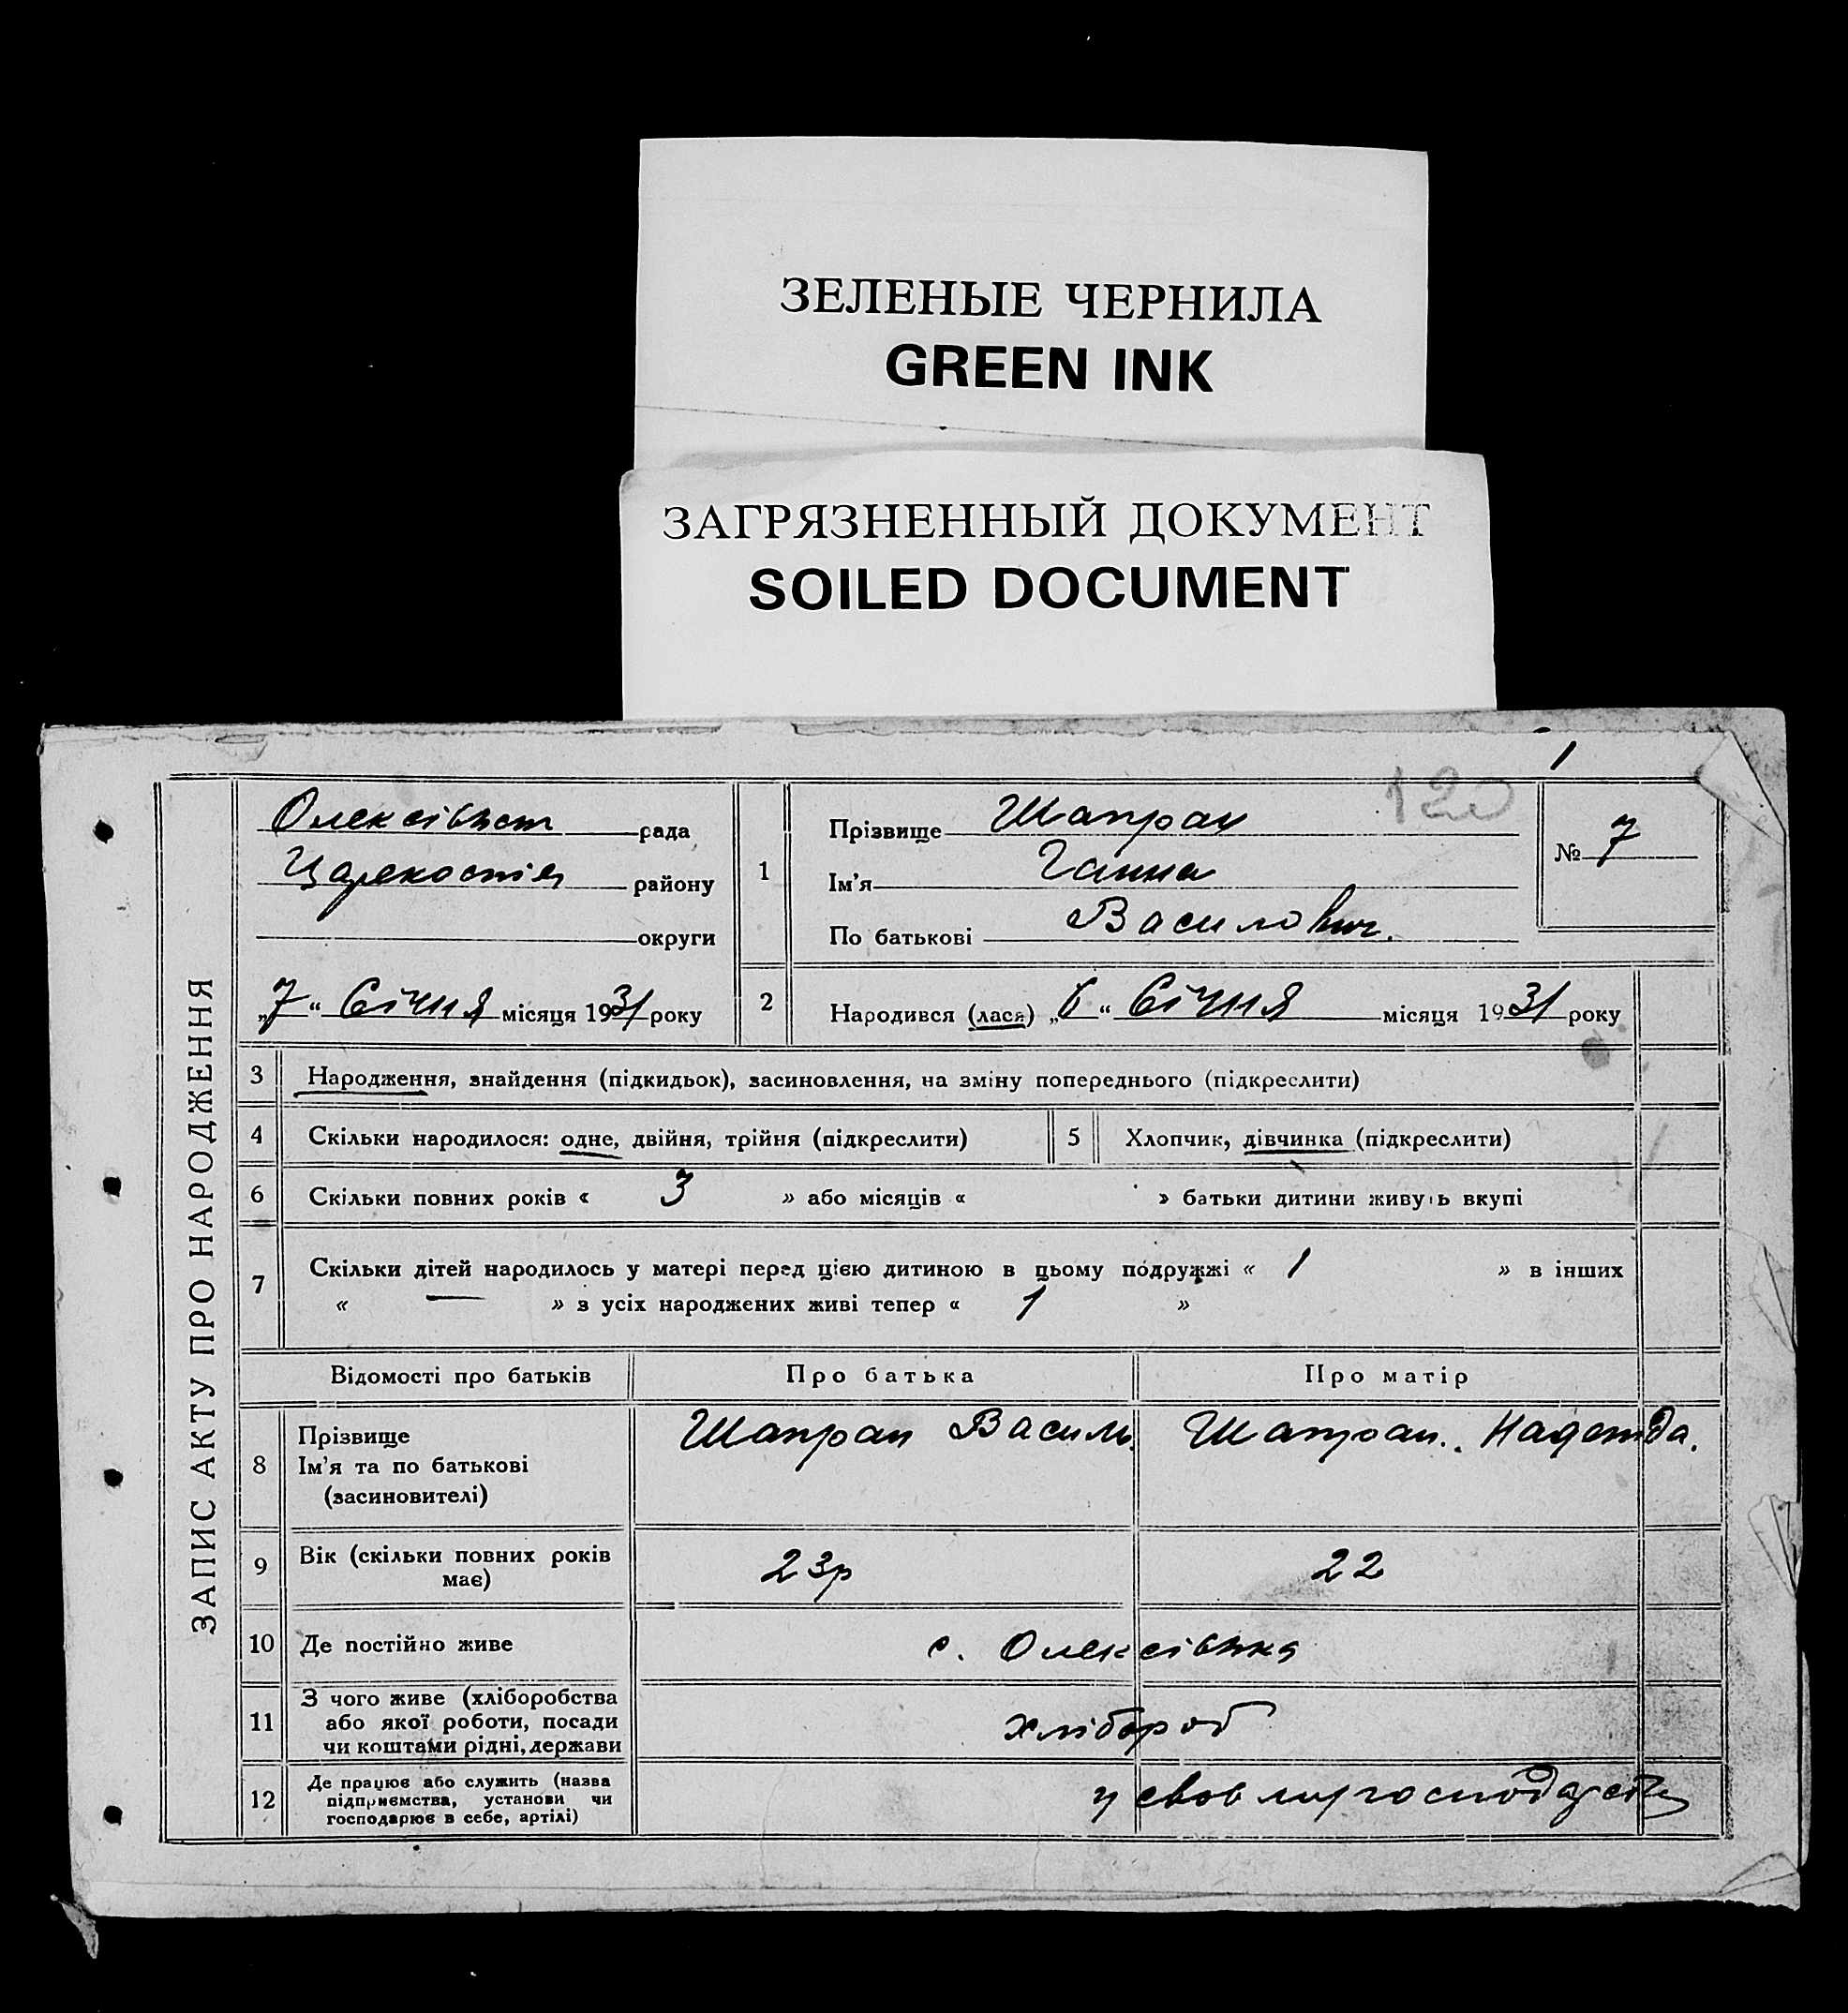 ЗЕЛЕНЫЕ ЧЕРНИЛА
GREEN INK
ЗАГРЯЗНЕННЫЙ ДОКУМЕНТ
SOILED DOCUMENT
1
120
ЗАПИС АКТУ ПРО НАРОДЖЕННЯ
рада
району
округи
„7“ Січня місяця 1931 року
1
Прізвище Шапран
Ім'я Ганна
По батькові Василович.
№ 7
2
Народився (лася) „6“ Січня місяця 1931 року
3 Народження, знайдення (підкидьок), засиновлення, на зміну попереднього (підкреслити)
4 Скільки народилося: одне, двійня, трійня (підкреслити)
5 Хлопчик, дівчинка (підкреслити)
6 Скільки повних років « 3 » або місяців « » батьки дитини живуть вкупі
7 Скільки дітей народилось у матері перед цією дитиною в цьому подружжі « 1 » в інших
« — » з усіх народжених живі тепер « 1 »
Відомості про батьків Про батька Про матір
8 Прізвище
Ім'я та по батькові
(засиновителі)
Шапран Василь.
Шапран. Надежда.
9 Вік (скільки повних років
має)
23р
22
10 Де постійно живе
с. Олексіївка
11 З чого живе (хліборобства
або якої роботи, посади
чи коштами рідні, держави
хлібороб
12 Де працює або служить (назва
підприємства, установи чи
господарює в себе, артілі)
у